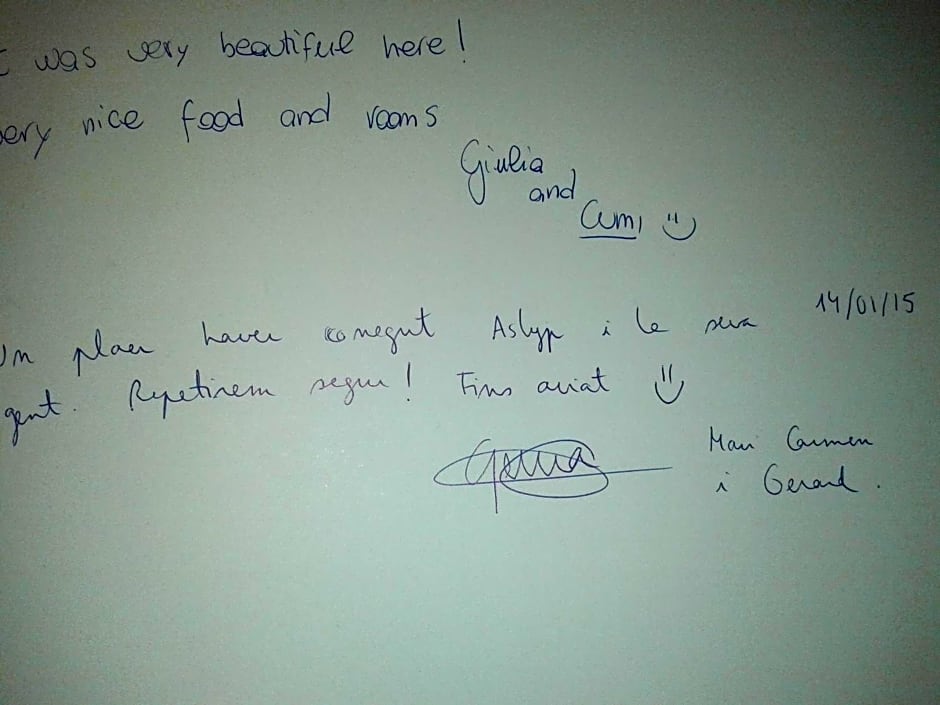 was very beautiful here!
very nice food and rooms
Giulia
and
Cumi
14/01/15
Un plaer haver conegut Aslyp i la seva
gent. Repetirem segur! Fins aviat
Mari Carmen
i Gerard.